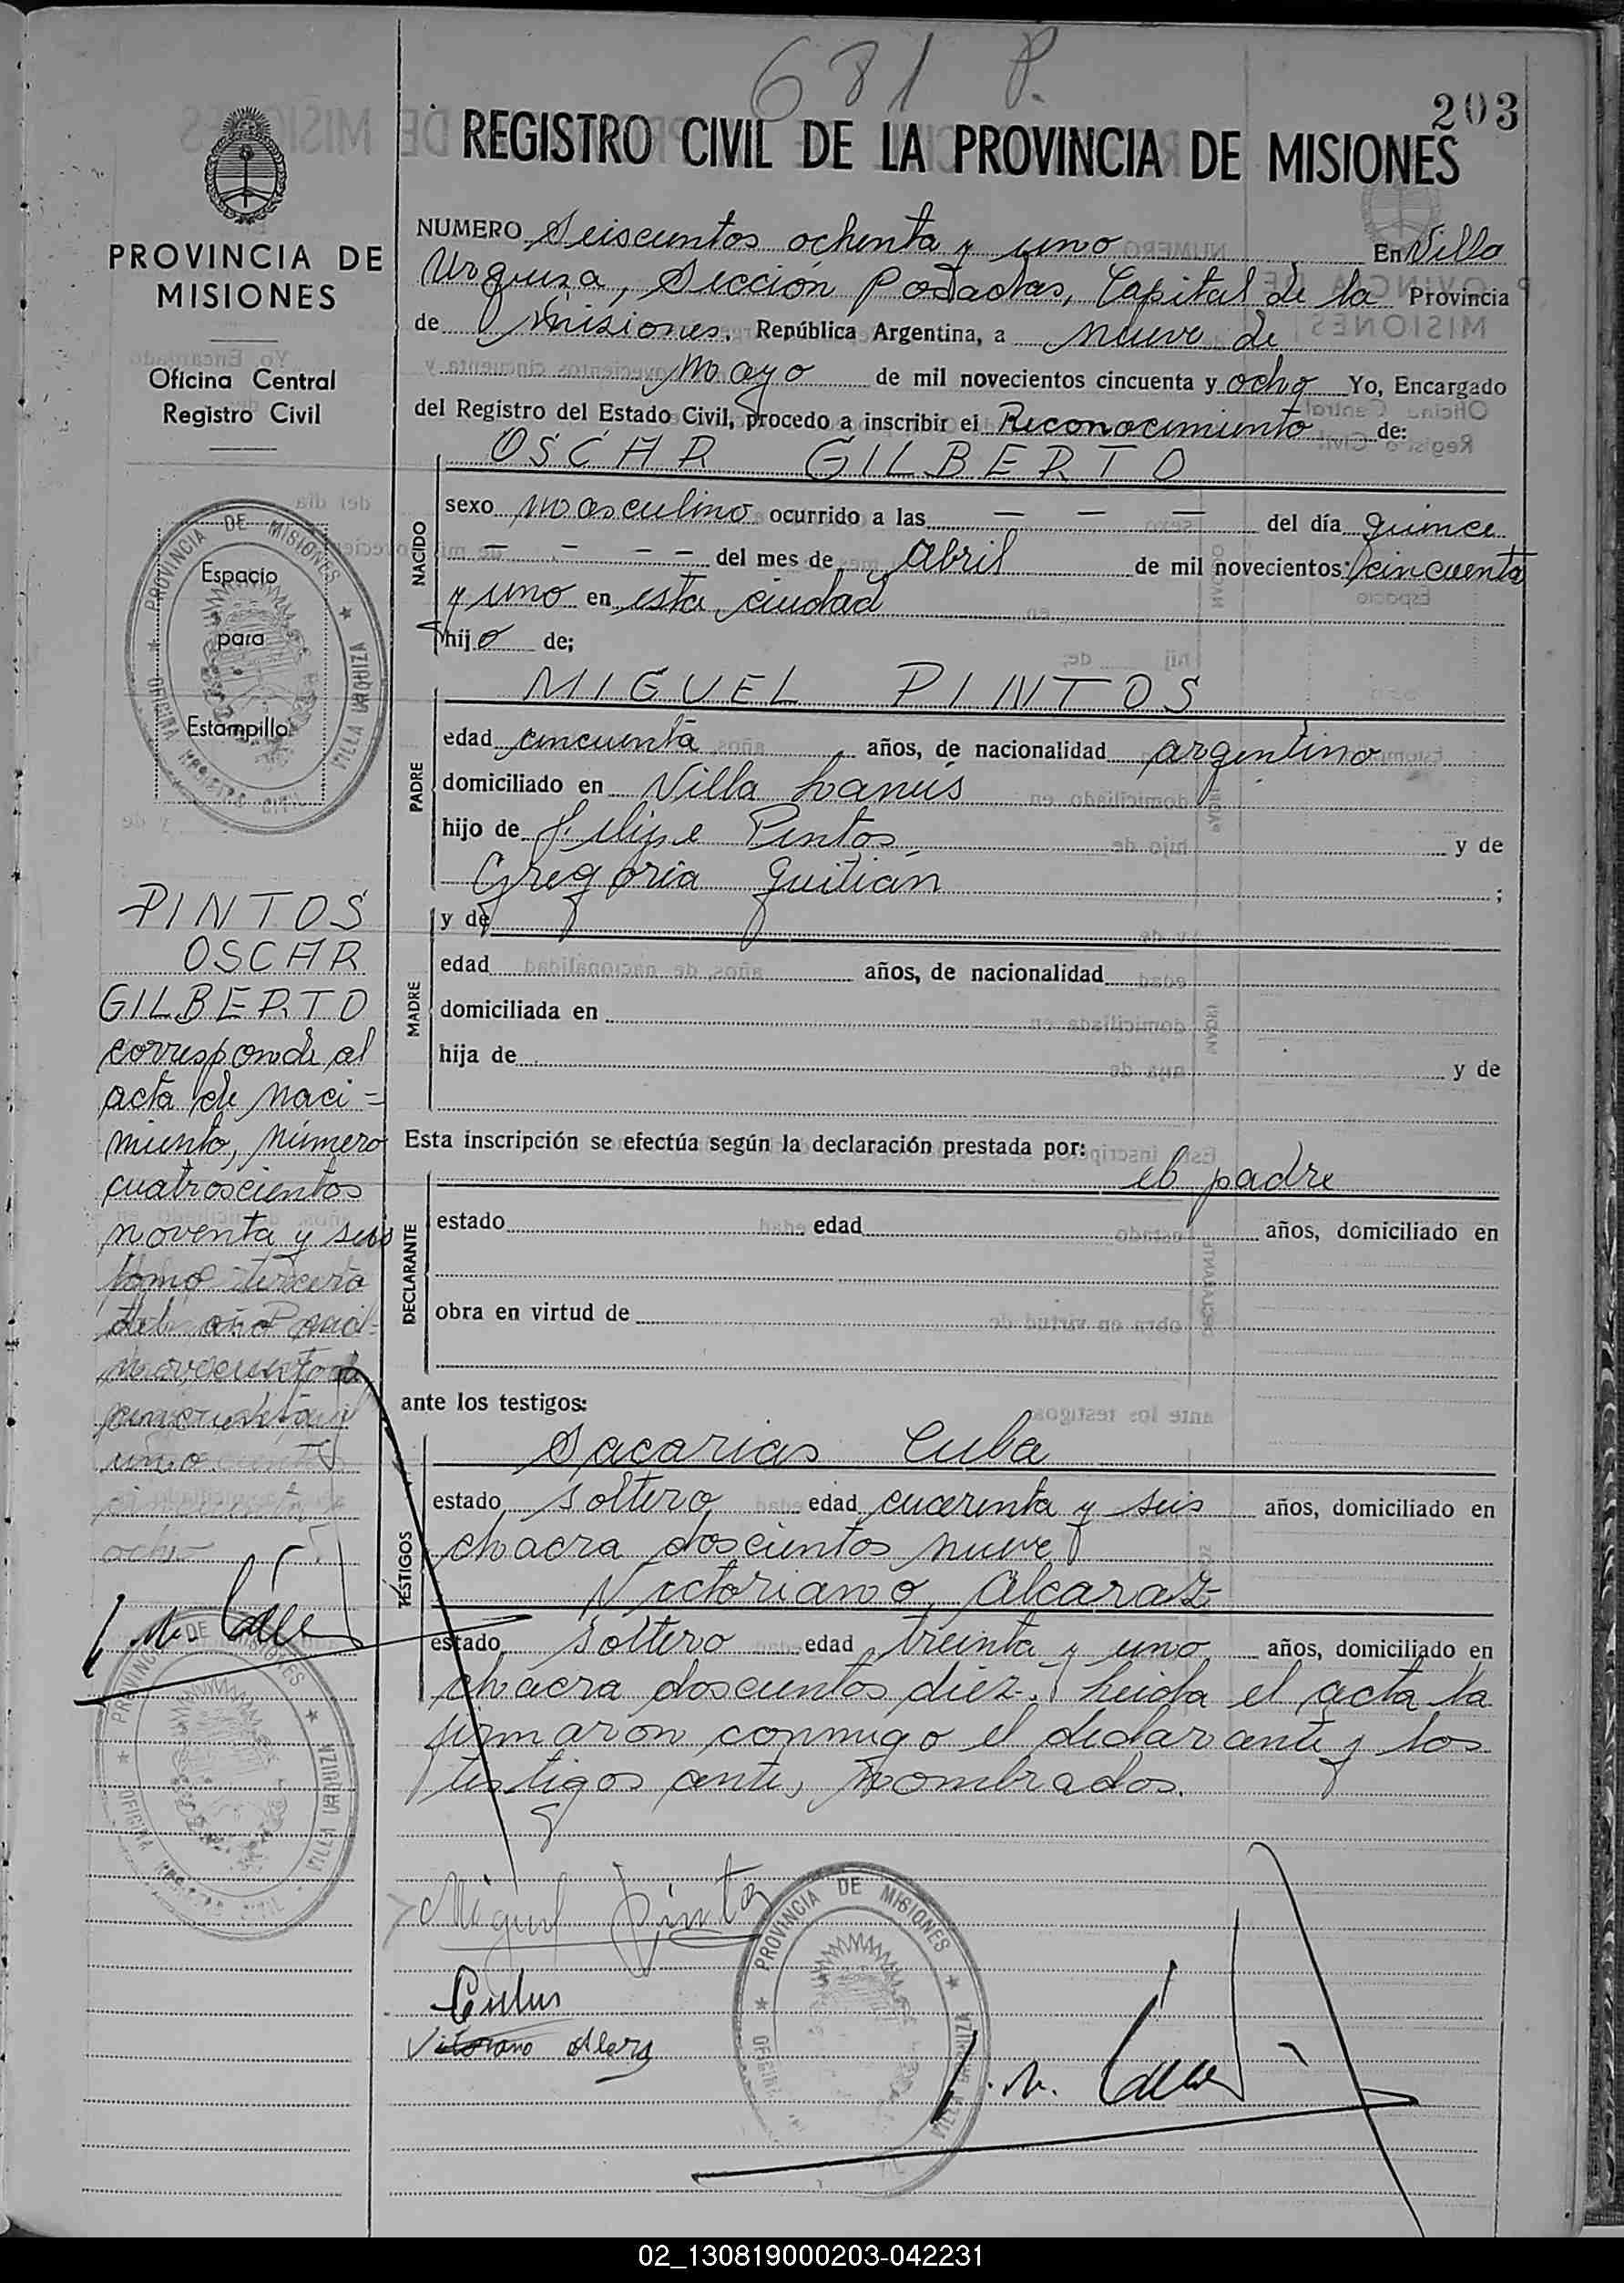 681 P.
203
REGISTRO CIVIL DE LA PROVINCIA DE MISIONES
PROVINCIA DE
MISIONES
Oficina Central
Registro Civil
NUMERO Seiscientos ochenta y uno En Villa
Urquiza, Sección Posadas, Capital de la Provincia
de Misiones, República Argentina, a nueve de
mayo de mil novecientos cincuenta y ocho Yo, Encargado
del Registro del Estado Civil, procedo a inscribir el Reconocimiento de:
OSCAR GILBERTO
NACIDO
sexo masculino ocurrido a las — — — del día quince
— — — — del mes de abril de mil novecientos cincuenta
y uno en esta ciudad
hijo de;
MIGUEL PINTOS
PADRE
edad cincuenta años, de nacionalidad argentino
domiciliado en Villa Lanús
hijo de Felipe Pintos y de
Gregoria Guitian ;
y de
MADRE
edad años, de nacionalidad
domiciliada en
hija de y de
Esta inscripción se efectúa según la declaración prestada por:
el padre
DECLARANTE
estado edad años, domiciliado en
obra en virtud de
ante los testigos:
Sacarias Cuba
TESTIGOS
estado soltero edad cuarenta y seis años, domiciliado en
chacra doscientos nueve
Victoriano Alcaraz
estado soltero edad treinta y uno años, domiciliado en
chacra doscientos diez. Leida el acta la
firmaron conmigo el declarante y los
testigos ante, nombrados.
Miguel Pintos
Espacio
para
Estampilla
PROVINCIA DE MISIONES
VILLA URQUIZA
OFICINA REGISTRO CIVIL
PINTOS
OSCAR
GILBERTO
corresponde al
acta de naci=
miento, número
cuatroscientos
noventa y seis
tomo tercero
del año mil
novecientos
cincuenta y
uno
ocho
PROVINCIA DE MISIONES
VILLA URQUIZA
OFICINA REGISTRO CIVIL
PROVINCIA DE MISIONES
VILLA URQUIZA
02_130819000203-042231